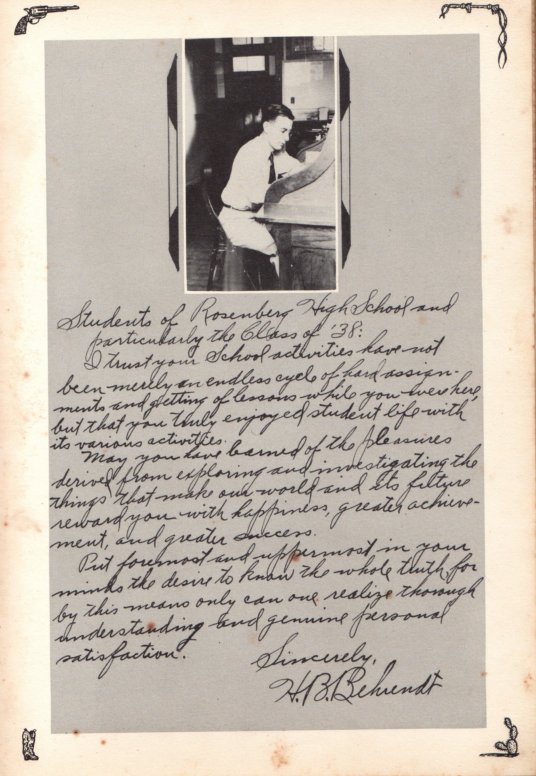 Students of Rosenberg High School and
particularly the Class of '38:
I trust your School activities have not
been merely an endless cycle of hard assign-
ments and getting of lessons while you were here,
but that you truly enjoyed student life with
its various activities.
May you have learned of the pleasures
derived from exploring and investigating the
things that make our world and its future
reward you with happiness, greater achieve-
ment, and greater success.
Put foremost and uppermost in your
minds the desire to know the whole truth, for
by this means only can one realize thorough
understanding and genuine personal
satisfaction.
Sincerely,
H. B. Behrendt